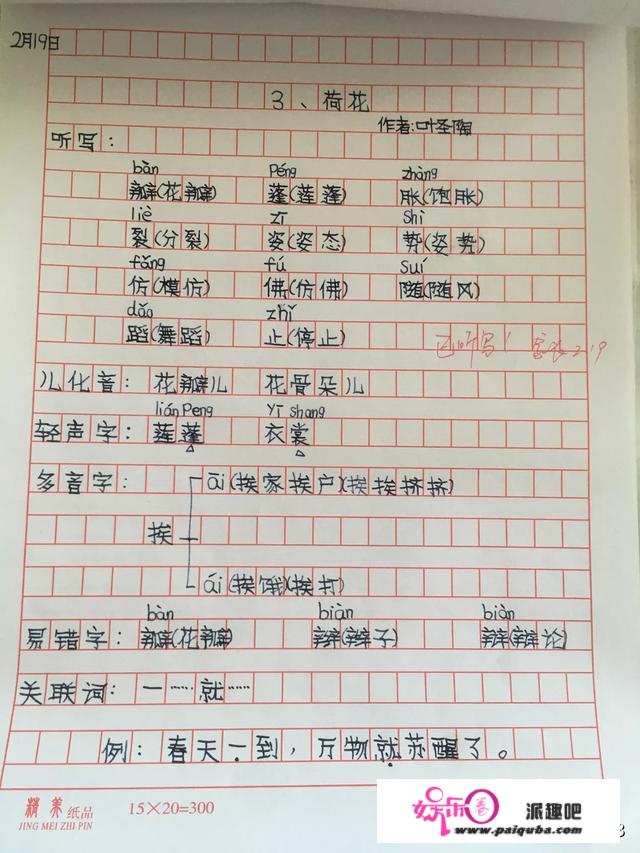 2月19日
3、荷花
作者:叶圣陶
听写:
bàn péng zhàng
瓣(花瓣) 蓬(莲蓬) 胀(饱胀)
liè zī shì
裂(分裂) 姿(姿态) 势(姿势)
fǎng fú suí
仿(模仿) 佛(仿佛) 随(随风)
dǎo zhǐ
蹈(舞蹈) 止(停止)
已听写! 2.19
儿化音: 花瓣儿 花骨朵儿
lián Peng Yī shang
轻声字: 莲蓬 衣裳
多音字: āi(挨家挨户)(挨挨挤挤)
挨
ái(挨饿)(挨打)
bàn biàn biàn
易错字: 瓣(花瓣) 辫(辫子) 辩(辩论)
关联词: 一……就……
例: 春天一到,万物就苏醒了。
精美纸品 15×20=300
JING MEI ZHI PIN
娱乐圈 派趣吧
www.paiquba.com
3